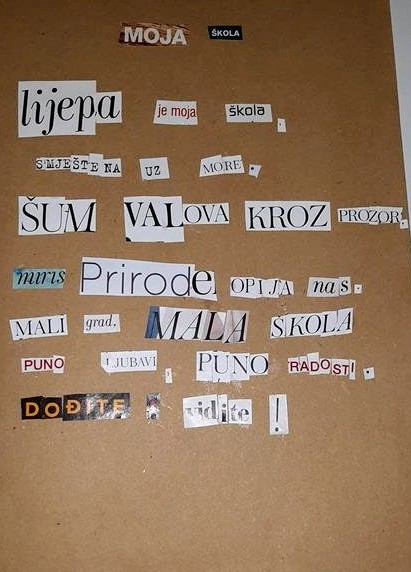 MOJA ŠKOLA
lijepa je moja škola.
SMJEŠTENA UZ MORE.
ŠUM VALOVA KROZ PROZOR.
miris Prirode OPIJA nas.
MALI grad. MALA ŠKOLA
PUNO LJUBAVI, PUNO RADOSTI.
DOĐITE I vidite !